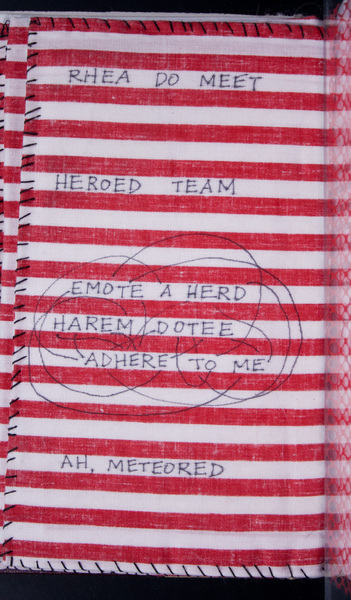 RHEA DO MEET
HEROED TEAM
EMOTE A HERD
HAREM/DOTEE
ADHERE TO ME
AH, METEORED